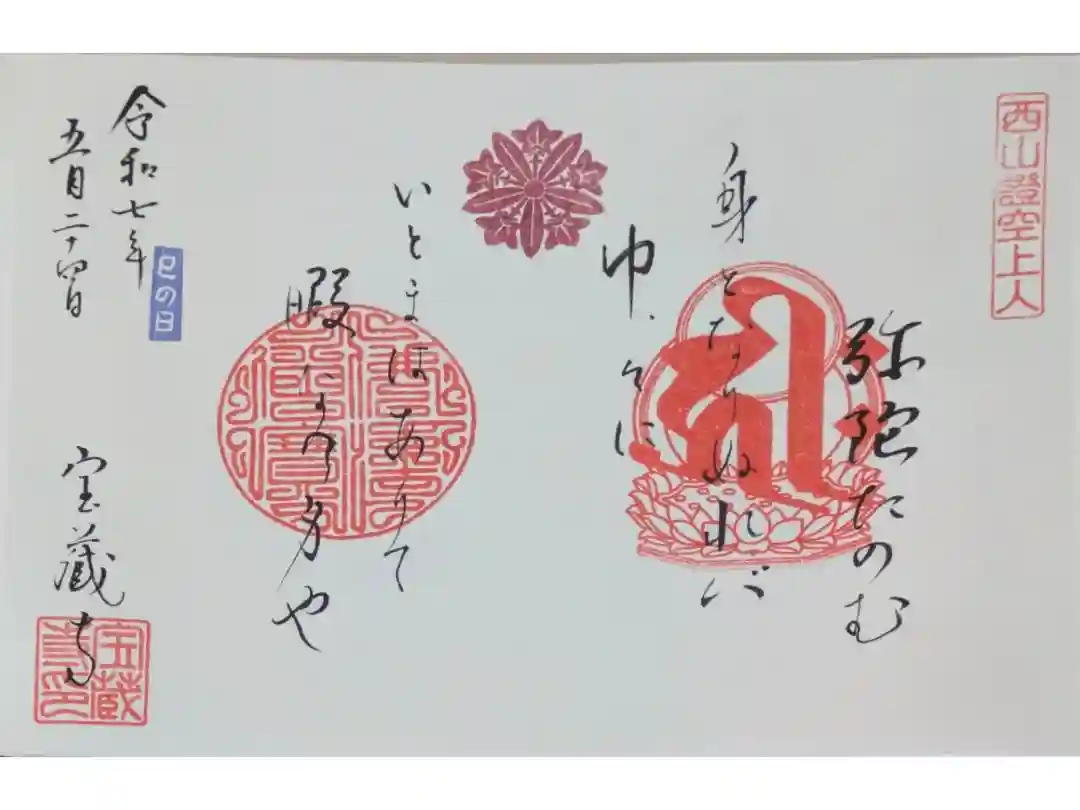 西山證空上人
弥陀たのむ
身となりぬれバ
中々に
いとまはありて
暇なの身や
令和七年
五月二十四日
巳の日
宝蔵寺
宝蔵寺印